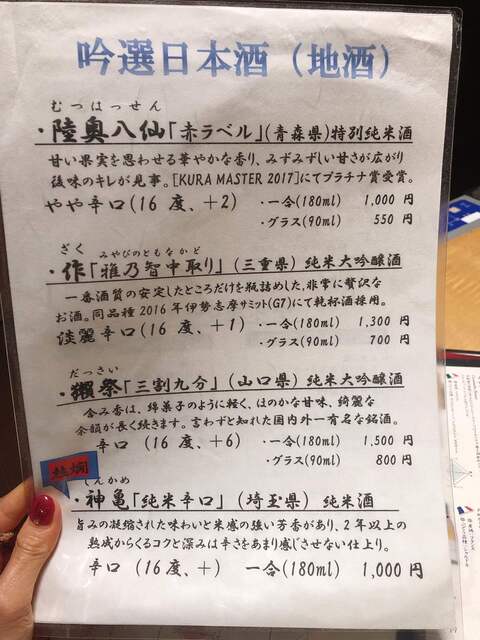 吟選日本酒（地酒）
むつはっせん
・陸奥八仙「赤ラベル」(青森県)特別純米酒
甘い果実を思わせる華やかな香り、みずみずしい甘さが広がり
後味のキレが見事。[KURA MASTER 2017]にてプラチナ賞受賞。
やや辛口(16度、＋2) ・一合(180ml) 1,000円
・グラス(90ml) 550円
ざく みやびのともなかど
・作「雅乃智中取り」(三重県) 純米大吟醸酒
一番酒質の安定したところだけを瓶詰めした、非常に贅沢な
お酒。同品種2016年伊勢志摩サミット(G7)にて乾杯酒採用。
淡麗辛口(16度、＋1) ・一合(180ml) 1,300円
・グラス(90ml) 700円
だっさい
・獺祭「三割九分」(山口県) 純米大吟醸酒
含み香は、綿菓子のように軽く、ほのかな甘味、綺麗な
余韻が長く続きます。言わずと知れた国内外一有名な銘酒。
辛口 (16度、＋6) ・一合(180ml) 1,500円
・グラス(90ml) 800円
熱燗
しんかめ
・神亀「純米辛口」(埼玉県) 純米酒
旨みの凝縮された味わいと米感の強い芳香があり、2年以上の
熟成からくるコクと深みは辛さをあまり感じさせない仕上り。
辛口 (16度、＋) 一合(180ml) 1,000円